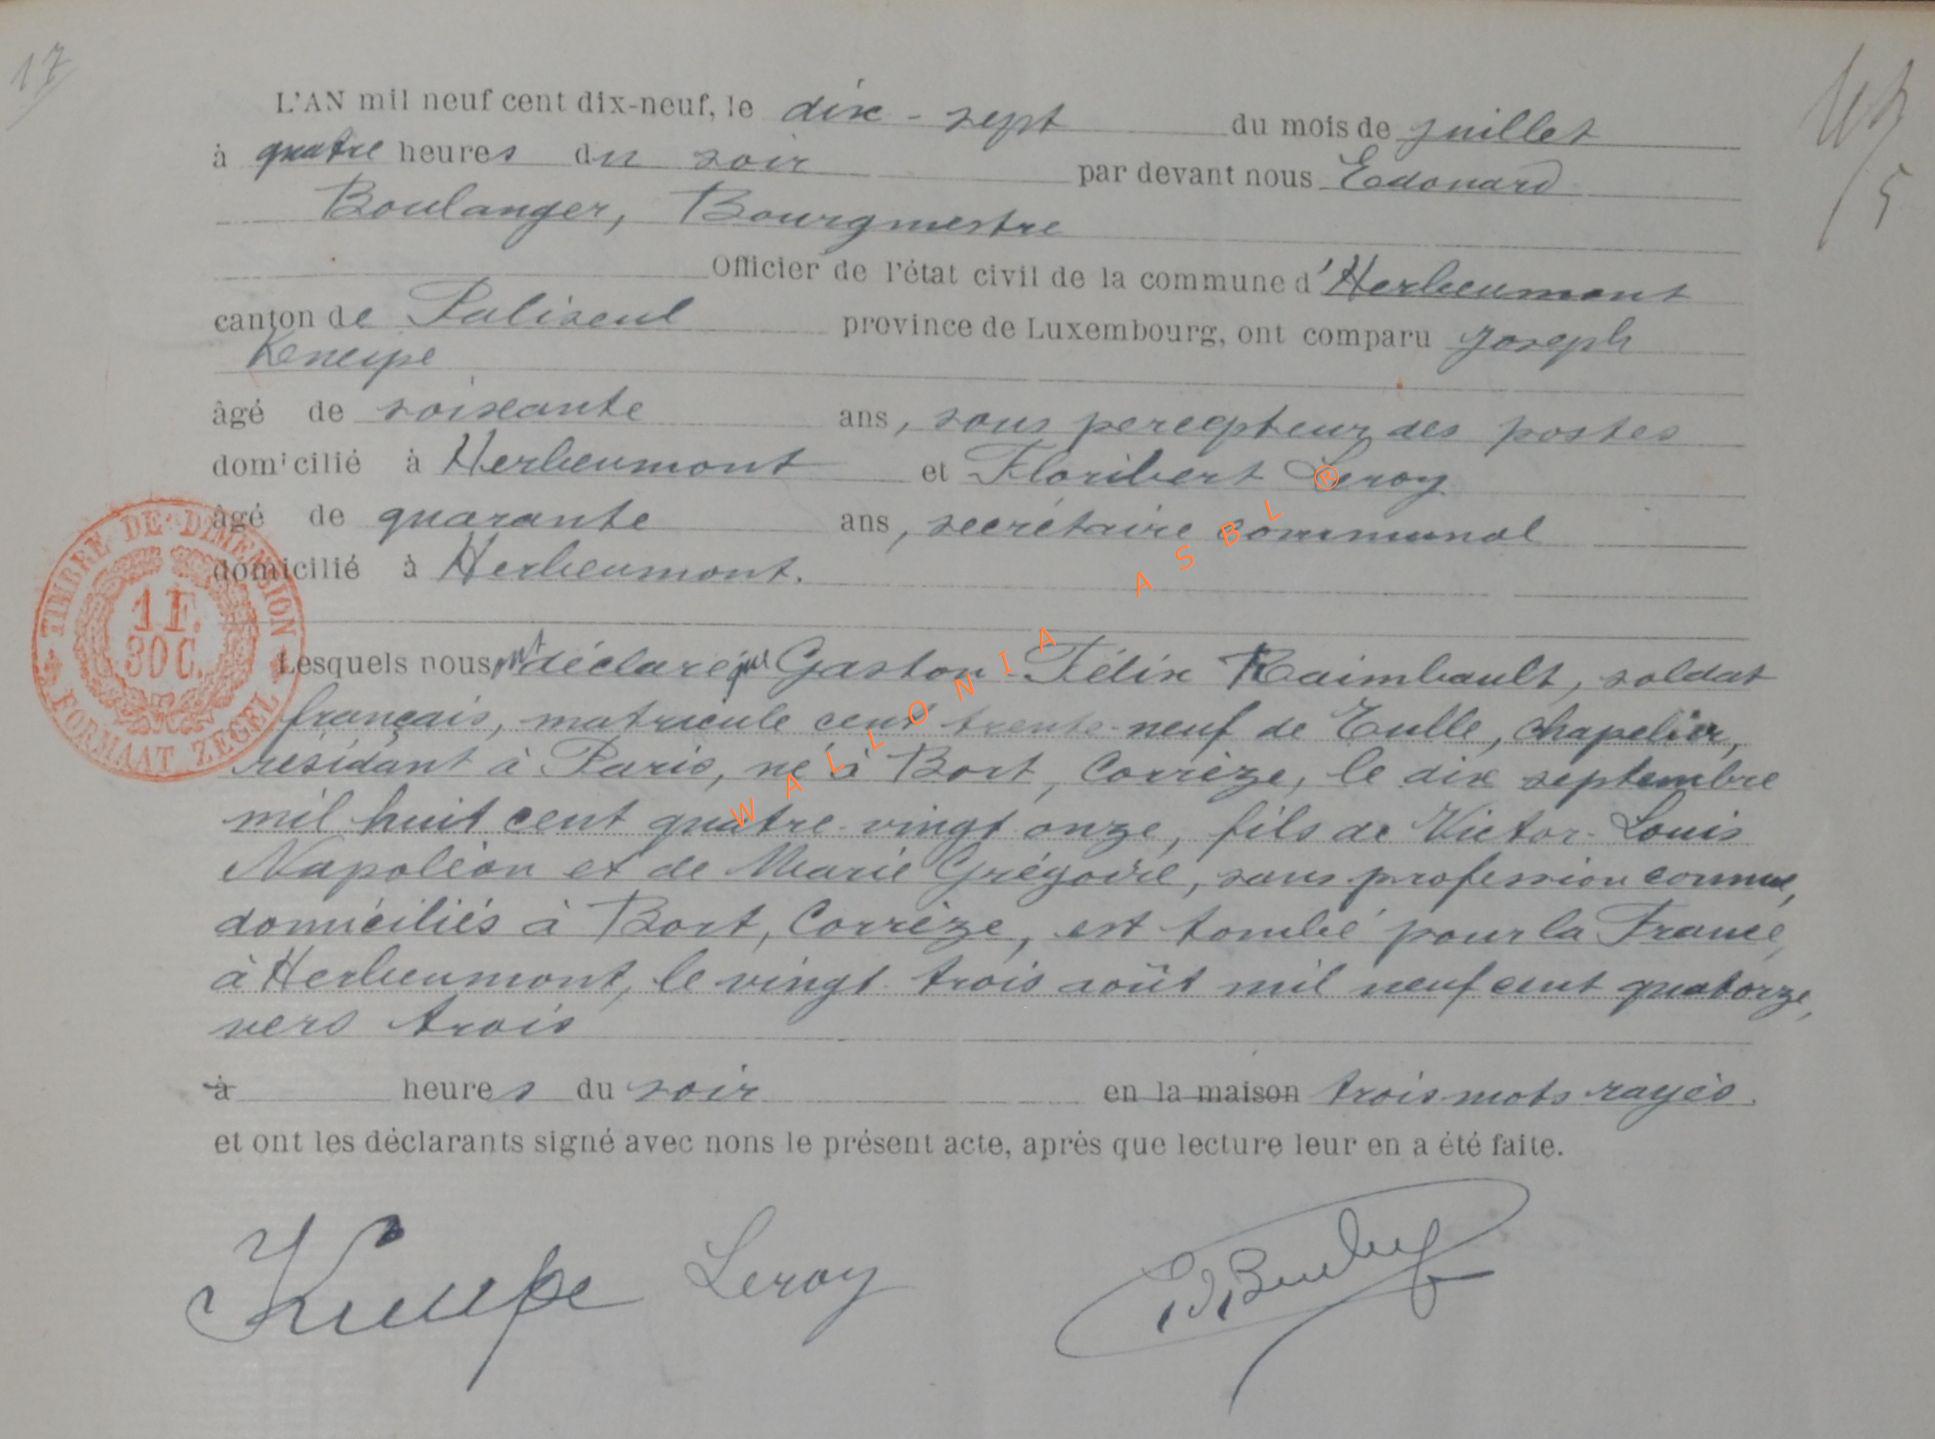 17
L'AN mil neuf cent dix-neuf, le dix-sept du mois de juillet
à quatre heures du soir par devant nous Edouard
Boulanger, Bourgmestre
Officier de l'état civil de la commune d'Herbeumont
canton de Paliseul province de Luxembourg, ont comparu Joseph
Keneipe
âgé de soixante ans, sous percepteur des postes
domicilié à Herbeumont et Floribert Leroy
âgé de quarante ans, secrétaire communal
domicilié à Herbeumont.
TIMBRE DE DIMENSION
1 F.
30 C.
FORMAAT ZEGEL
Lesquels nous ont déclaré que Gaston Félix Raimbault, soldat
français, matricule cent trente-neuf de Tulle, chapelier,
résidant à Paris, né à Bort, Corrèze, le dix septembre
mil huit cent quatre-vingt onze, fils de Victor-Louis
Napoléon et de Marie Grégoire, sans profession connue,
domiciliés à Bort, Corrèze, est tombé pour la France,
à Herbeumont, le vingt-trois août mil neuf cent quatorze,
vers trois
à heures du soir en la maison trois mots rayés.
et ont les déclarants signé avec nons le présent acte, après que lecture leur en a été faite.
Leroy
WALLONIA ASBL ®